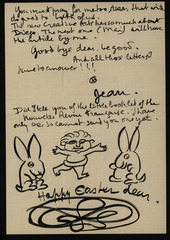 You must pray for metro dear, that will
do good to both of us.
The new Creative Art has much about
Diego. The next one (May) will have
the article by me.
Good bye dear. be good.
And all those letters
tomorrow!!!
Jean.
Did I tell you of the little booklet of the
Nouvelle Revue Française. I have
only one so cannot send you one yet.
Happy Easter dear.